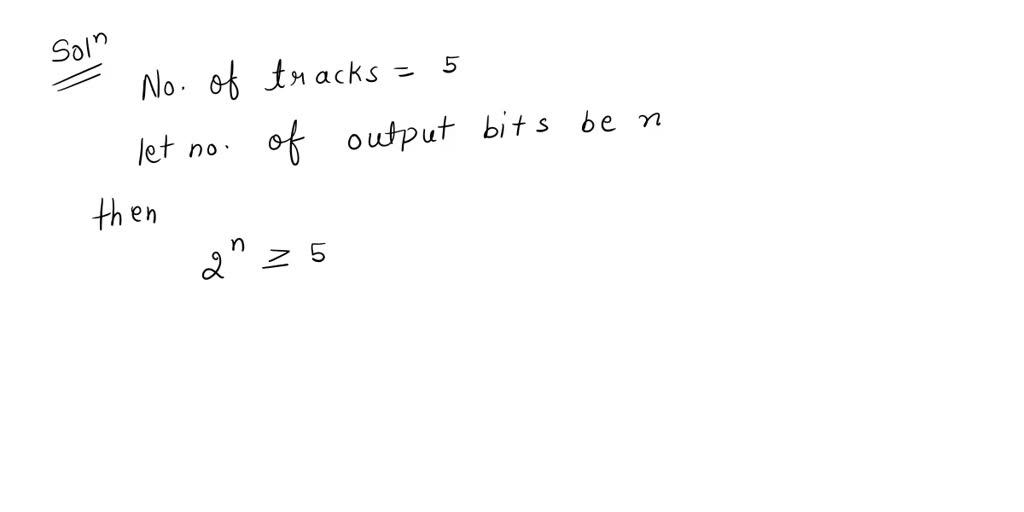 Solⁿ
No. of tracks = 5
let no. of output bits be n
then
2ⁿ ≥ 5